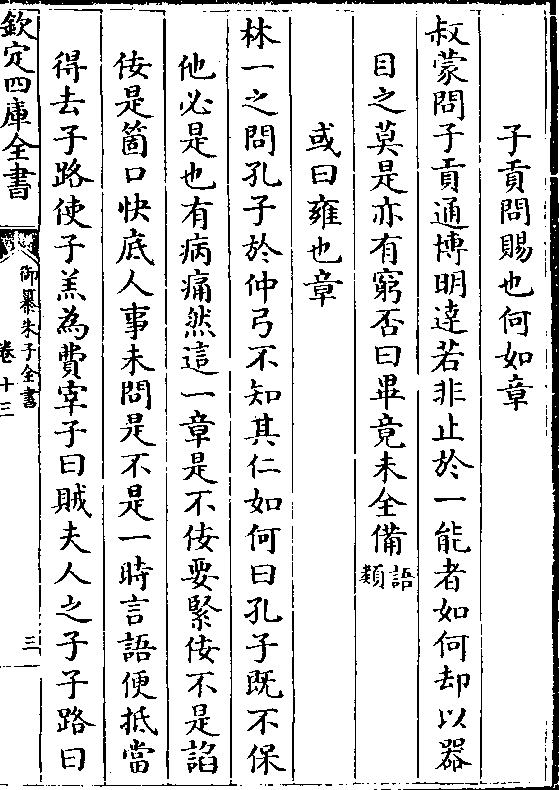 子貢問賜也何如章
叔蒙問子貢通博明達若非止於一能者如何却以器
目之莫是亦有窮否曰畢竟未全備語類
或曰雍也章
林一之問孔子於仲弓不知其仁如何曰孔子既不保
他必是也有病痛然這一章是不佞要緊佞不是諂
佞是箇口快底人事未問是不是一時言語便抵當
得去子路使子羔為費宰子曰賊夫人之子子路曰
欽定四庫全書
御纂朱子全書
卷十三
三